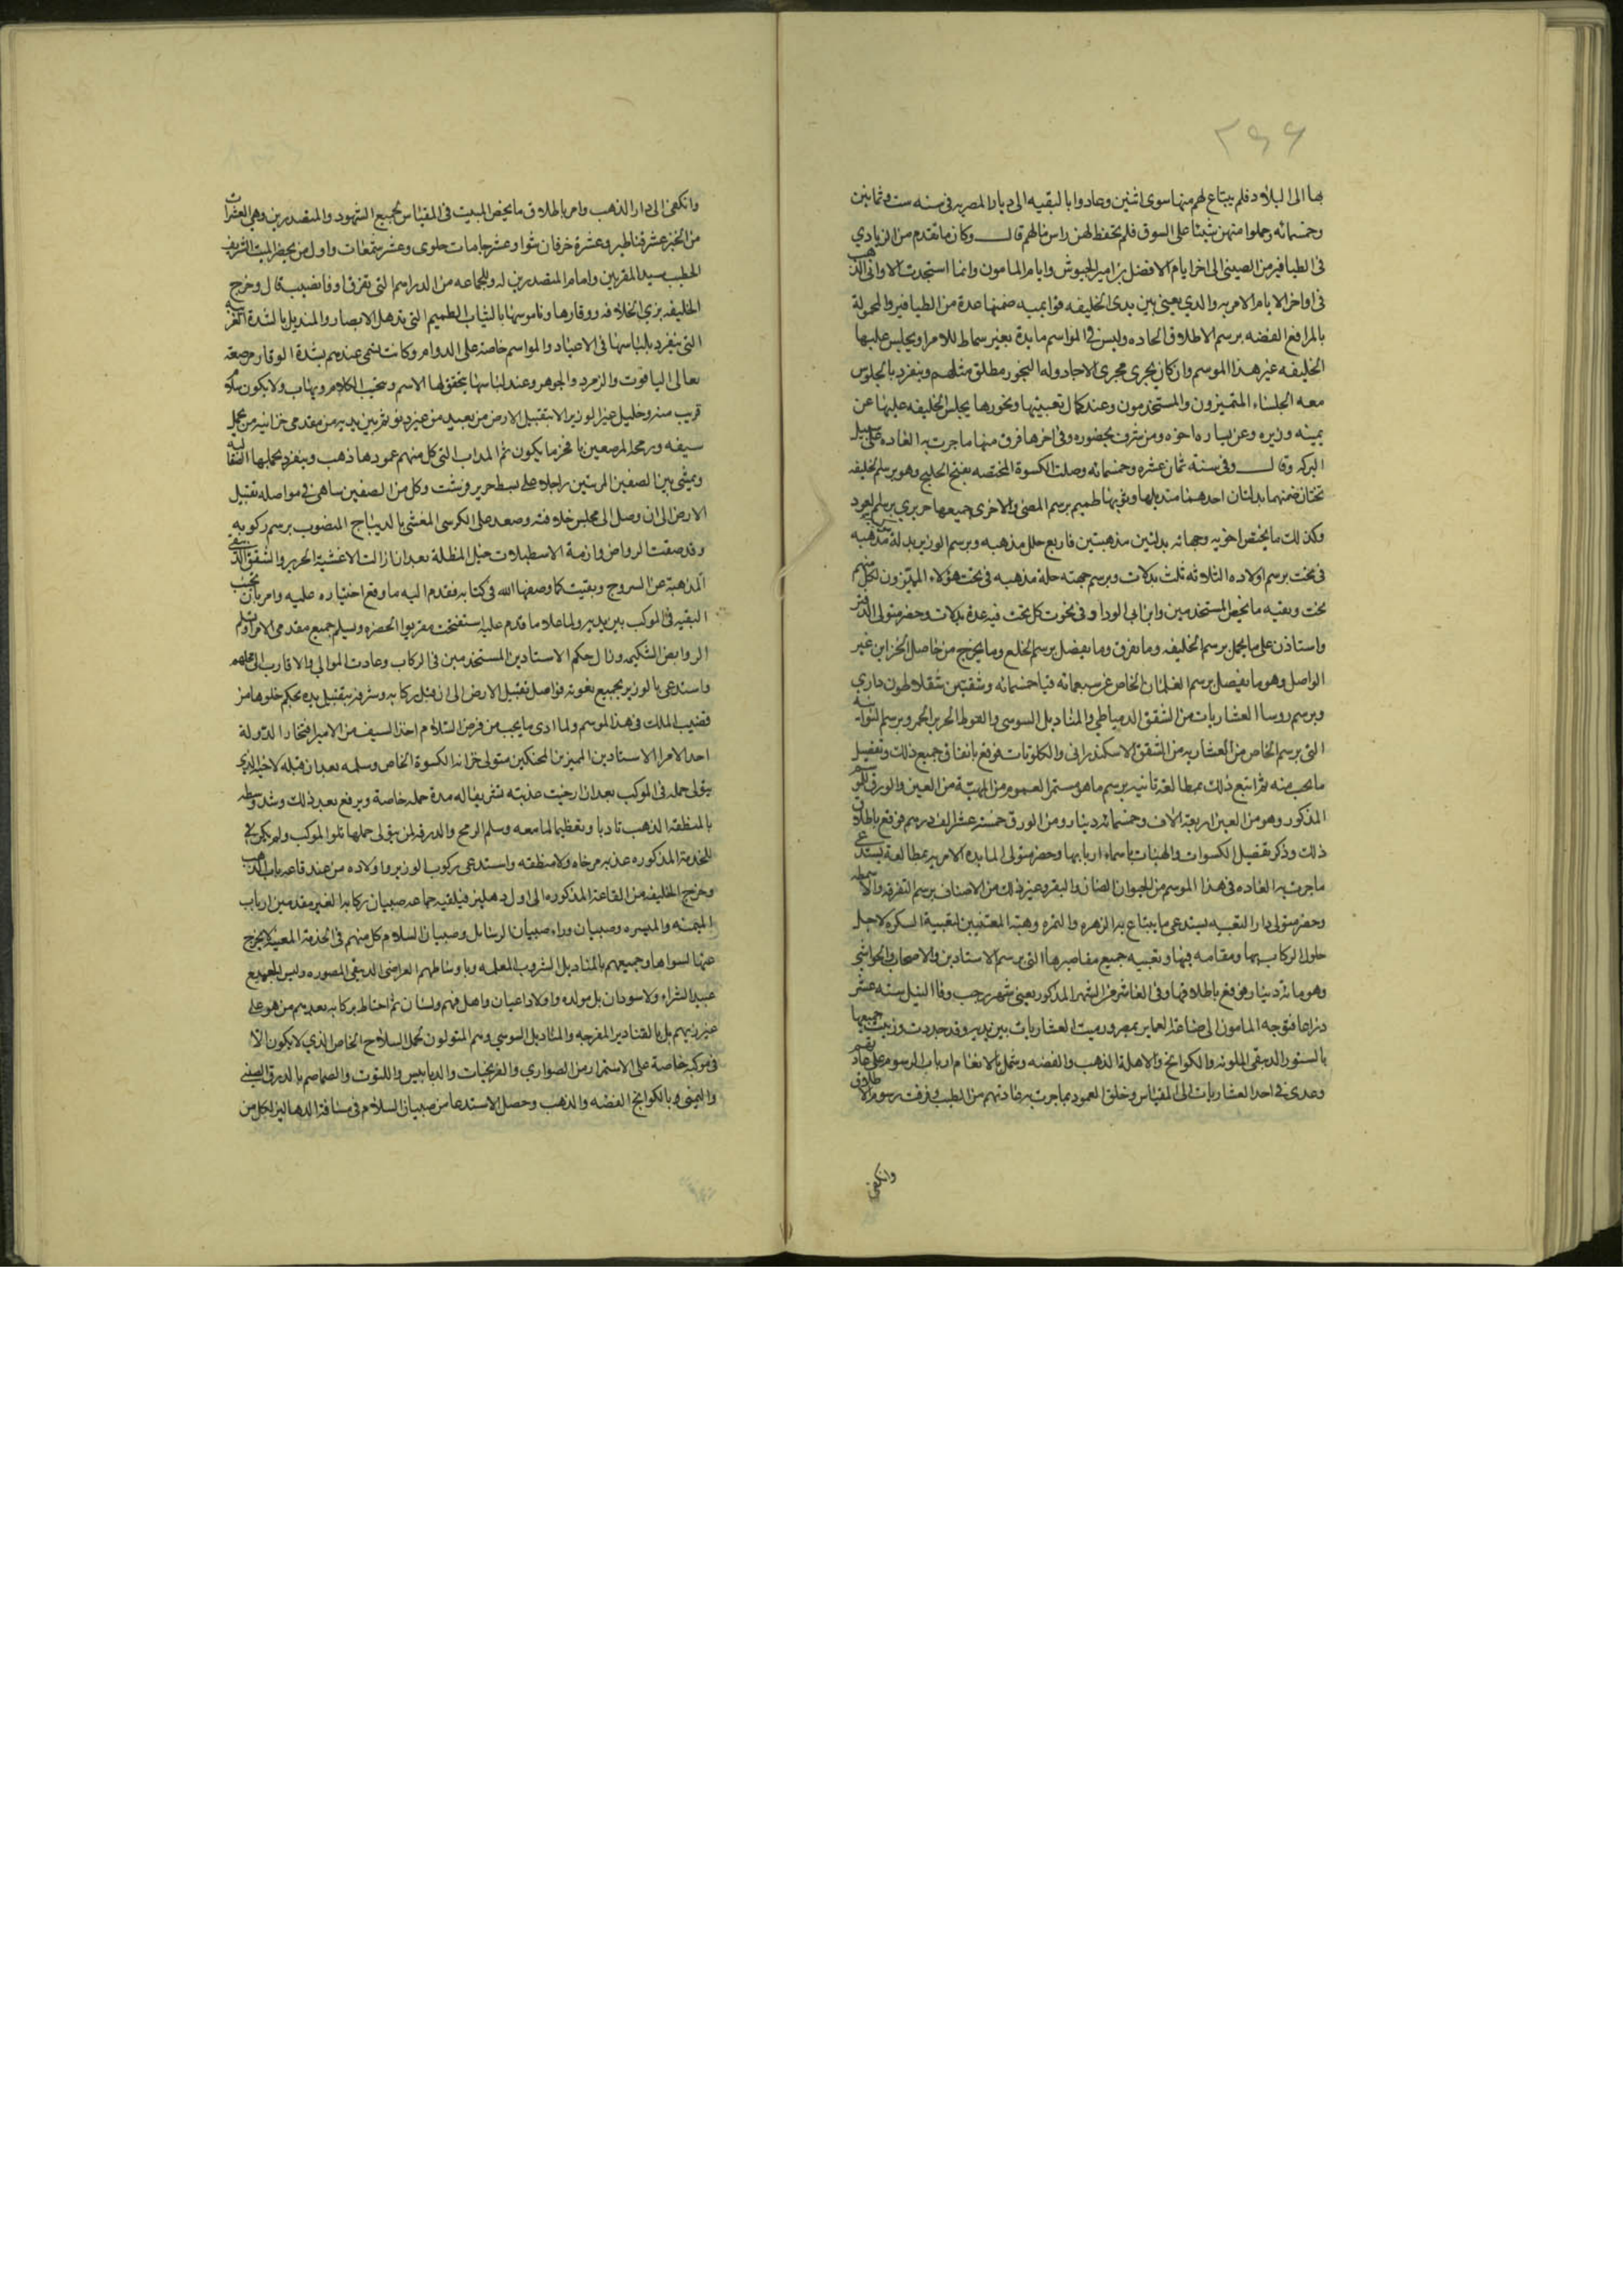 ٢٩٩
بها الى البلاد فلم يبتاع لهم منها سوى اثنين وعادوا بالبقيه الى ديار المصريه فى سنه ست وثمانين
وخمسمائه وحملوا منهن شيئا على السوق فلم يحفظ لهن راس مالهم قال وكان ما تقدم من الزيادي
فى الطيافير من الصينى الى اخر ايام الافضل بن امير الجيوش وايام المامون وانما استجدت الاوانى الذهب
فى اواخر الايام الامريه والذي يعبى بين يدى الخليفه قوايميه ضمنها عدة من الطيافير والمحمولة
بالمرافع الفضه برسم الاطلاق الحاده وليس فى المواسم مايدة بغير سماط للامرا ويجلس عليها
الخليفه غير هذا الموسم وان كان يجرى مجرى الاجاد وله البخور مطلق مثلهم وينفرد بالجلوس
معه الجلساء المتميزون والمستخدمون وعند كمال تعبيتها وبخورها يجلس الخليفه عليها عن
يمينه وزيره وعن يساره اخوه ومن شرف بحضوره وفى اخرها فرق منها ما جرت به العاده على سبيل
البركه وقال وفى سنة ثمان عشره وخمسمائه وصلت الكسوة المختصه بفتح الخليج وهو برسم الخليفه
تختان ضمنهما بدلتان احدهما منديلها وثوبها طميم برسم المضى والاخرى جميعها حريري برسم العود
وكذلك ما يختص اخوته وجهاته بدلتين مذهبتين فاربع حلل مذهبه وبرسم الوزير بدلة مذهبه
فى تخت برسم اولاده الثلاثه ثلث بدلات وبرسم جهته حلة مذهبه فى تخت هؤلاء المميزون لكل منهم
تخت وبقيه ما يخص المستخدمين وابن ابى الرداد وفى تخوت كل تخت فيه عدة بدلات وحضر متولى الدفتر
واستاذن على ما يحمل برسم الخليفه وما يفرق وما يفضل برسم الخلع وما يخرج من حاصل الخزاين غير
الواصل وهو ما يفصل برسم الغلمان الخاص عن سبعمائه قبا خمسمائه وشقتين سقلاطون داري
وبرسم روسا العشاريات من الشقق الدمياطي والمناديل السوسى والفوط الحرير الحمر وبرسم النواتية
التى برسم الخاص من العشاريه من الشقق الاسكندرانى والكلوتات فوقع بانفاق جميع ذلك وتفصيل
ما يجب منه ثم اتبع ذلك بمطالعة ثانيه برسم ما هو مستمر العموم من الهبة من العين والورق للموسم
المذكور وهو من العين اربعة الاف وخمسمائه دينار ومن الورق خمسه عشر الف درهم فوقع باطلاق
ذلك وذكر تفصيل الكسوات والهبات باسماء اربابها وحضر متولى المايده الامريه بمطالعة يستدعى
ما جرت به العاده فى هذا الموسم من الحيوان الضان والبقر وغير ذلك من الاصناف برسم التفرقه والاسمطه
وحضر متولى دار التعبيه يستدعى ما يبتاع به الزهره والثمره وهبة المعتنيين لتعبية السكره لاجل
حلول الركاب بها ومقامه فيها وتعبيه جميع مقاصيرها التى برسم الاستادين والاصحاب والحواشى
وهو مائة دينار فوقع باطلاقها وفى العاشر من الشهر المذكور يعنى شهر رجب وفا النيل سته عشر
ذراعا فتوجه المامون الى صناعة العماير بمصر ورميت العشاريات بين يديه وقد جددت وزينت جميعها
بالستور الدبيقى الملونه والكوابخ والاهلة الذهب والفضه وشمل الانعام ارباب الرسوم على عادتهم
وعدى فى احد العشاريات الى المقياس وخلق العمود بما جرت به عادتهم من الطيب وفرقت رسوم الاطلاق
وانكفى
وانكفى الى دار الذهب وامر باطلاق ما يخص المبيت فى المقياس بجميع الشهود والمتصدرين وهى العشرات
من الخبز عشره قناطير وعشرة خرفان شوا وعشر جامات حلوى وعشر شمعات واول من يحضر المبيت الشريف
الخطيب سيد المقربين وامام المتصدرين له وللجماعه من الدراهم التى تفرق اوفا نصيب قال وخرج
الخليفه بزي الخلافه ووقارها وناموسها بالثياب الطميم التى تذهل الابصار والمنديل بالشدة العزيزيه
التى ينفرد بلباسها فى الاعياد والمواسم خاصة على الدوام وكانت تسمى عندهم بشدة الوقار مرصعة
بغالى الياقوت والزمرد والجوهر وعند لباسها يخفق لها الاسم ويتجنب الكلام ويهاب ولا يكون سلام
قريب منه وخليل غير الوزير الا بتقبيل الارض من بعيد من غير دنو ثم بين يديه من مقدمى خزانته من يحمل
سيفه ورمحه المرصعين بافخر ما يكون ثم المداب التى كل منهم عمودها ذهب وينفرد بحملها الصقالبه
ويمشى بين الصفين المرتبين راجلا على بسط حرير فرشت وكل من الصفين يتناهى فى مواصله تقبيل
الارض الى ان وصل الى مجلس خلافته وصعد على الكرسى المغشى بالديباج المنصوب برسم ركوبه
وقد صفت الرواض وازمة الاسطبلات خيل المظلة بعد ان ازالت الاغشية الحرير والشقق الدبيقى
المذهبة عن السروج وبقيت كما وصفها الله فى كتابه فقدم اليه ما وقع اختياره عليه وامر بان تجنب
البقيه فى الموكب بين يديه ولما علا ما قدم عليه استفتحت مقريوا الحضره وتسلم جميع مقدمى الامر اوتسلم
الروابض الشكيمه وزال حكم الاستادين المستخدمين فى الركاب وعادت الموالى والاقارب الى محلهم
واستدعى بالوزير بجميع نعوته فواصل تقبيل الارض الى ان قبل ركابه وشرفه بتقبيل يده بحكم خلوها من
قضيب الملك فى هذا الموسم ولما ادى ما يجب من فرض السلام اخذ السيف من الامير افتخار الدولة
احد الامرا الاستادين المميزين المحنكين متولى خزانة الكسوة الخاص وسلمه بعد ان قبله لاخيه الذى
يتولى حمله فى الموكب بعد ان ارخيت عذبته تشريفا له مدة حمله خاصة ويرفع بعد ذلك وشد وسطه
بالمنطقة الذهب تادبا وتعظيما لما معه وسلم الرمح والدرقه لمن يتولى حملها تلو الموكب ولم يكن فى
للخدمة المذكوره عذبه مرخاه ولا منطقه واستدعى بركوب الوزير واولاده من عند قاعه باب الذهب
وخرج الخليفه من القاعة المذكوره الى اول دهليز فيلقيه جماعه صبيان ركابه الغير مقدمين ارباب
الميمنه والميسره وصبيان وراء صبيان الرسايل وصبيان السلام كل منهم فى الخدمة المعينه لا يخرج
عنها لسواها وجميعهم بالمناديل الشروب المعلمه وباوساطهم العراضى الدبيقى المصوره وليس بجميع
عبيد الشراء ولا سودان بل مولده واولاد اعيان واهل فهم ولسان ثم احتاط بركابه بعدهم من هو على
غير زيهم بل بالقنادير المفرجه والمناديل السوسي وهم المتولون لحمل السلاح الخاص الذي لا يكون الا
فى موكبه خاصة على الاستمرار من الصواري والفرنجيات والدبابيس واللتوت والصماصم بالدرق الصينى
واليمنى بالكوابخ الفضه والذهب وحصل الاستدعا من صبيان السلام فى مسافة الدهاليز لكل من